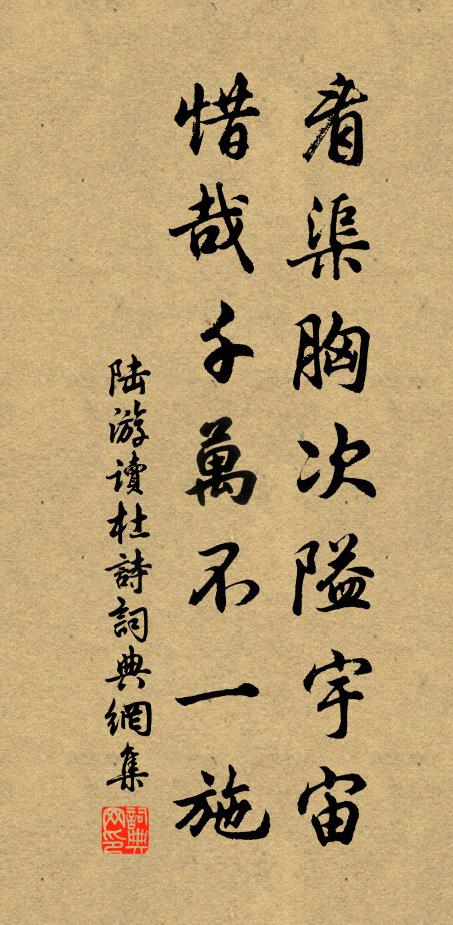 看渠胸次隘宇宙
惜哉千萬不一施
陆游讀杜詩詞典網集
詞典
网印